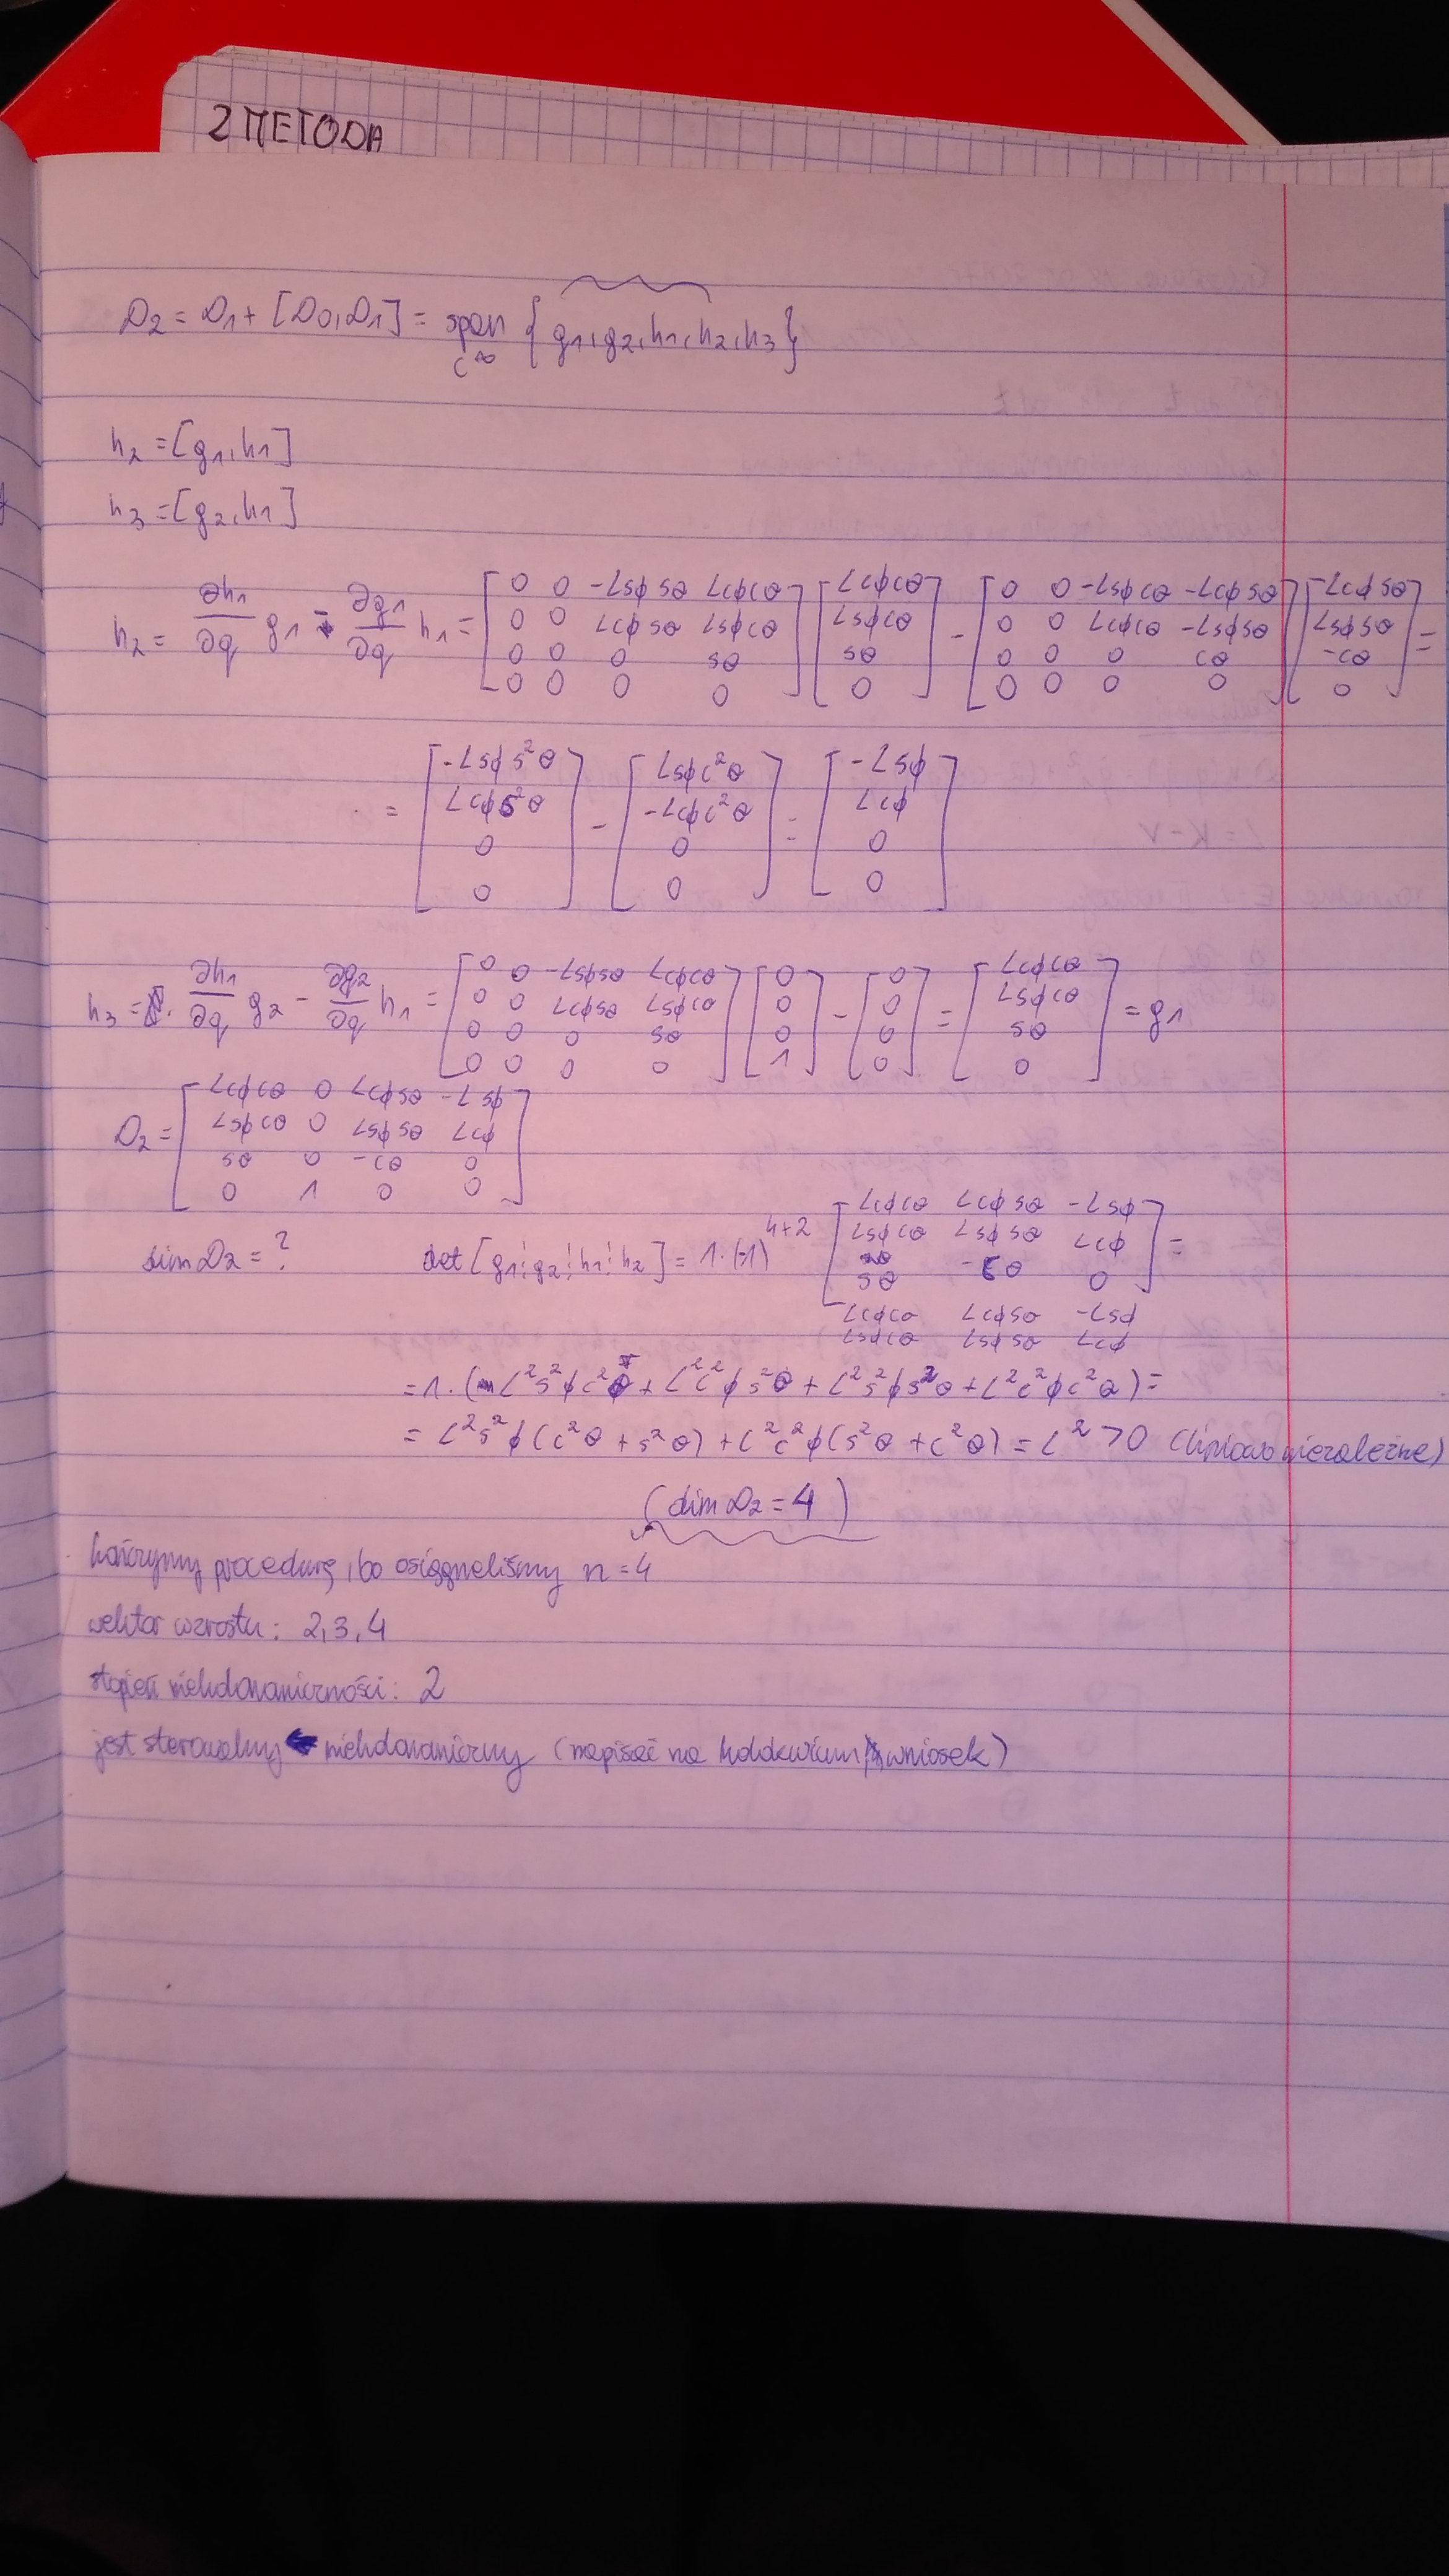 2 METODA
D₂ = D₁ + [D₀, D₁] = span { g₁, g₂, h₁, h₂, h₃ }
C∞
h₂ = [g₁, h₁]
h₃ = [g₂, h₁]
h₂ = ∂h₁/∂q g₁ - ∂g₁/∂q h₁ = [0 0 -Lsϕsθ Lcϕcθ; 0 0 Lcϕsθ Lsϕcθ; 0 0 0 sθ; 0 0 0 0] [Lcϕcθ; Lsϕcθ; sθ; 0] - [0 0 -Lsϕcθ -Lcϕsθ; 0 0 Lcϕcθ -Lsϕsθ; 0 0 0 cθ; 0 0 0 0] [Lcϕsθ; Lsϕsθ; -cθ; 0] =
= [-Lsϕs²θ; Lcϕs²θ; 0; 0] - [Lsϕc²θ; -Lcϕc²θ; 0; 0] = [-Lsϕ; Lcϕ; 0; 0]
h₃ = ∂h₁/∂q g₂ - ∂g₂/∂q h₁ = [0 0 -Lsϕsθ Lcϕcθ; 0 0 Lcϕsθ Lsϕcθ; 0 0 0 sθ; 0 0 0 0] [0; 0; 0; 1] - [0; 0; 0; 0] = [Lcϕcθ; Lsϕcθ; sθ; 0] = g₁
D₂ = [Lcϕcθ 0 Lcϕsθ -Lsϕ; Lsϕcθ 0 Lsϕsθ Lcϕ; sθ 0 -cθ 0; 0 1 0 0]
dim D₂ = ? det [g₁ ¦ g₂ ¦ h₁ ¦ h₂] = 1·(-1)⁴⁺² [Lcϕcθ Lcϕsθ -Lsϕ; Lsϕcθ Lsϕsθ Lcϕ; sθ -cθ 0] =
Lcϕcθ Lcϕsθ -Lsϕ
Lsϕcθ Lsϕsθ Lcϕ
= 1·(L²s²ϕc²θ + L²c²ϕs²θ + L²s²ϕs²θ + L²c²ϕc²θ) =
= L²s²ϕ(c²θ + s²θ) + L²c²ϕ(s²θ + c²θ) = L² > 0 (liniowo niezależne)
(dim D₂ = 4)
kończymy procedurę, bo osiągnęliśmy n = 4
wektor wzrostu: 2, 3, 4
stopień nieholonomiczności: 2
jest sterowalny ← nieholonomiczny (napisać na kolokwium wniosek)